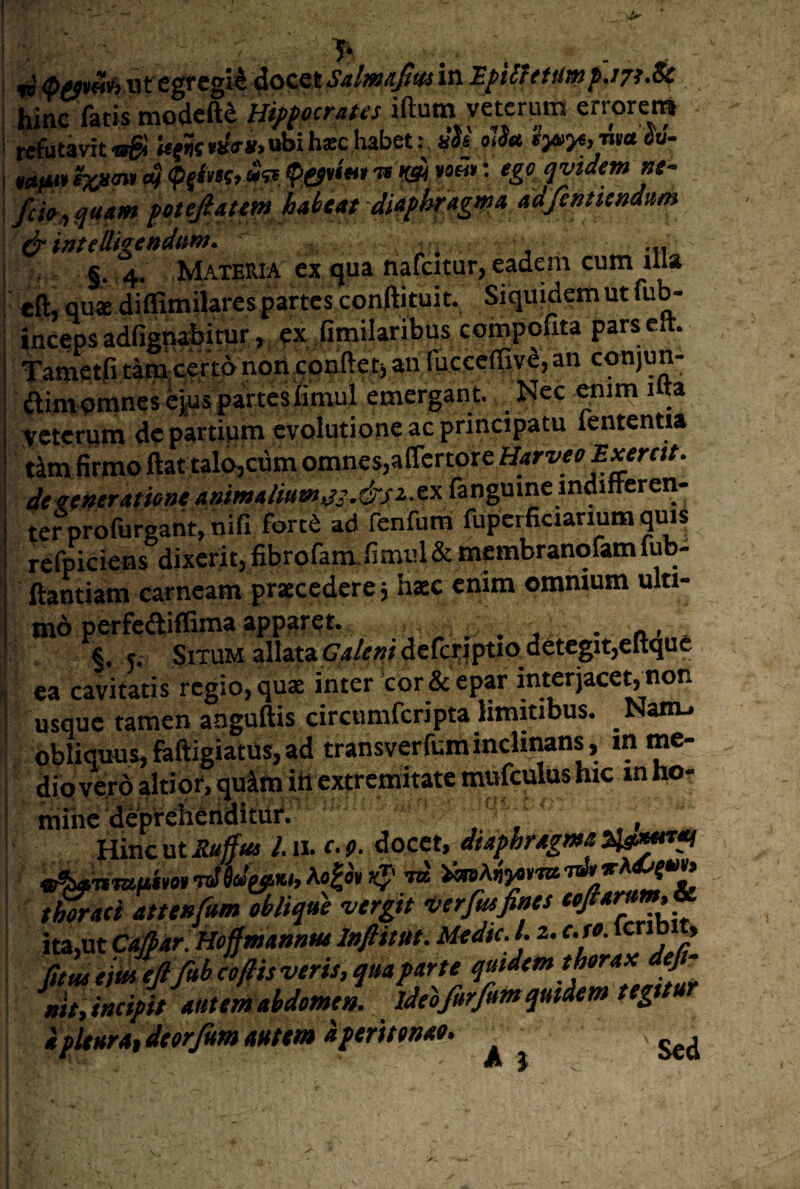 5.
τῦ φρονεῖν, ut egregiè docet Salmasius in Epictetum p.171.&
hinc satis modestè Hippocrates istum veterum errorem
refutavit περὶ ἱερῆς νόσου, ubi hæc habet: οὐδὲ οἶδα ἔγωγε, τίνα δύ-
ναμιν ἔχουσιν αἱ φρένες, ὥστε φρονέειν τε καὶ νοεῖν: ego qvidem ne-
scio, quam potestatem habeat diaphragma adsentiendum
& intelligendum.
§. 4. MATERIA ex qua nascitur, eadem cum illa
est, quæ dissimilares partes constituit. Siquidem ut sub-
inceps adsignabitur, ex similaribus composita pars est.
Tametsi tàm certò non constet, an successivè, an conjun-
ctim omnes ejus partes simul emergant. Nec enim ista
veterum de partium evolutione ac principatu sententia
tàm firmo stat talo, cùm omnes, assertore Harveo Exercit.
de generatione animalium 33. & 52. ex sanguine indifferen-
ter prosurgant, nisi fortè ad sensum superficiarium quis
respiciens dixerit, fibrosam simul & membranosam sub-
stantiam carneam præcedere; hæc enim omnium ulti-
mò perfectissima apparet.
§. 5. SITUM allata Galeni descriptio detegit, estque
ea cavitatis regio, quæ inter cor & epar interjacet, non
usque tamen angustis circumscripta limitibus. Nam
obliquus, fastigiatus, ad transversum inclinans, in me-
dio verò altior, quàm in extremitate musculus hic in ho-
mine deprehenditur.
Hinc ut Ruffus l. 11. c. 9. docet, diaphragma
λοξὸν
thoraci attensum oblique vergit versus fines costarum, &
ita, ut Caspar. Hoffmannus Institut. Medic. l. 2. c. 50. scribit,
situs ejus est sub costis veris, qua parte quidem thorax desi-
nit, incipit autem abdomen. Ideò sursum quidem tegitur
à pleura, deorsum autem à peritonæo.
A 3 Sed